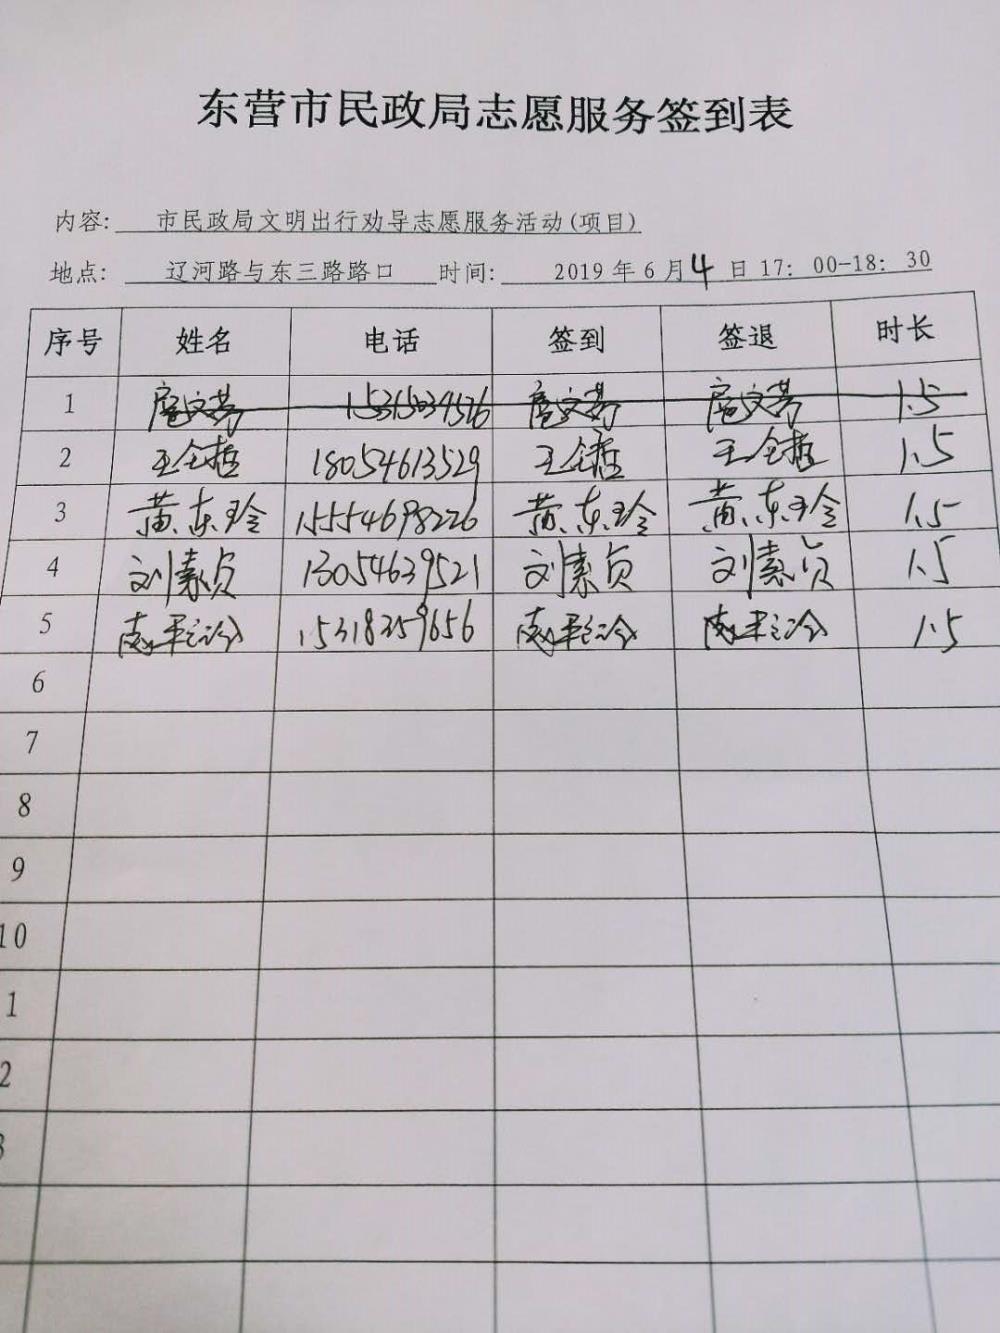 东营市民政局志愿服务签到表
内容: 市民政局文明出行劝导志愿服务活动(项目)
地点: 辽河路与东三路路口 时间: 2019年6月4日17: 00-18: 30
序号 姓名 电话 签到 签退 时长
1 文芳 文芳 文芳 1.5
2 王全哲 18054613529 王全哲 王全哲 1.5
3 黄东玲 15554698226 黄东玲 黄东玲 1.5
4 刘素贞 13054639521 刘素贞 刘素贞 1.5
5 15318359656 1.5
6
7
8
9
10
1
2
3